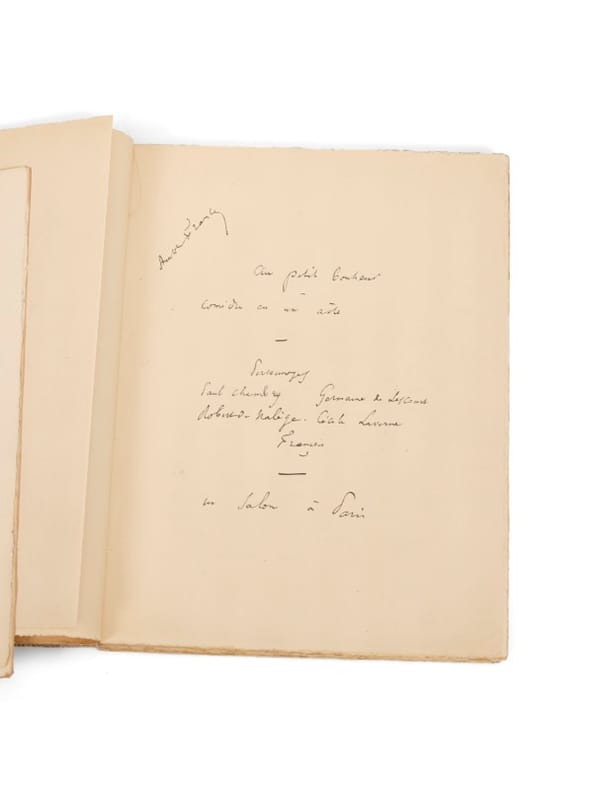 Anatole France
Au petit bonheur
comédie en un acte
Personnages
Paul Chambry Germaine de Lescens
Robert de Nalège. Cécile Laverne
François
un salon à Paris